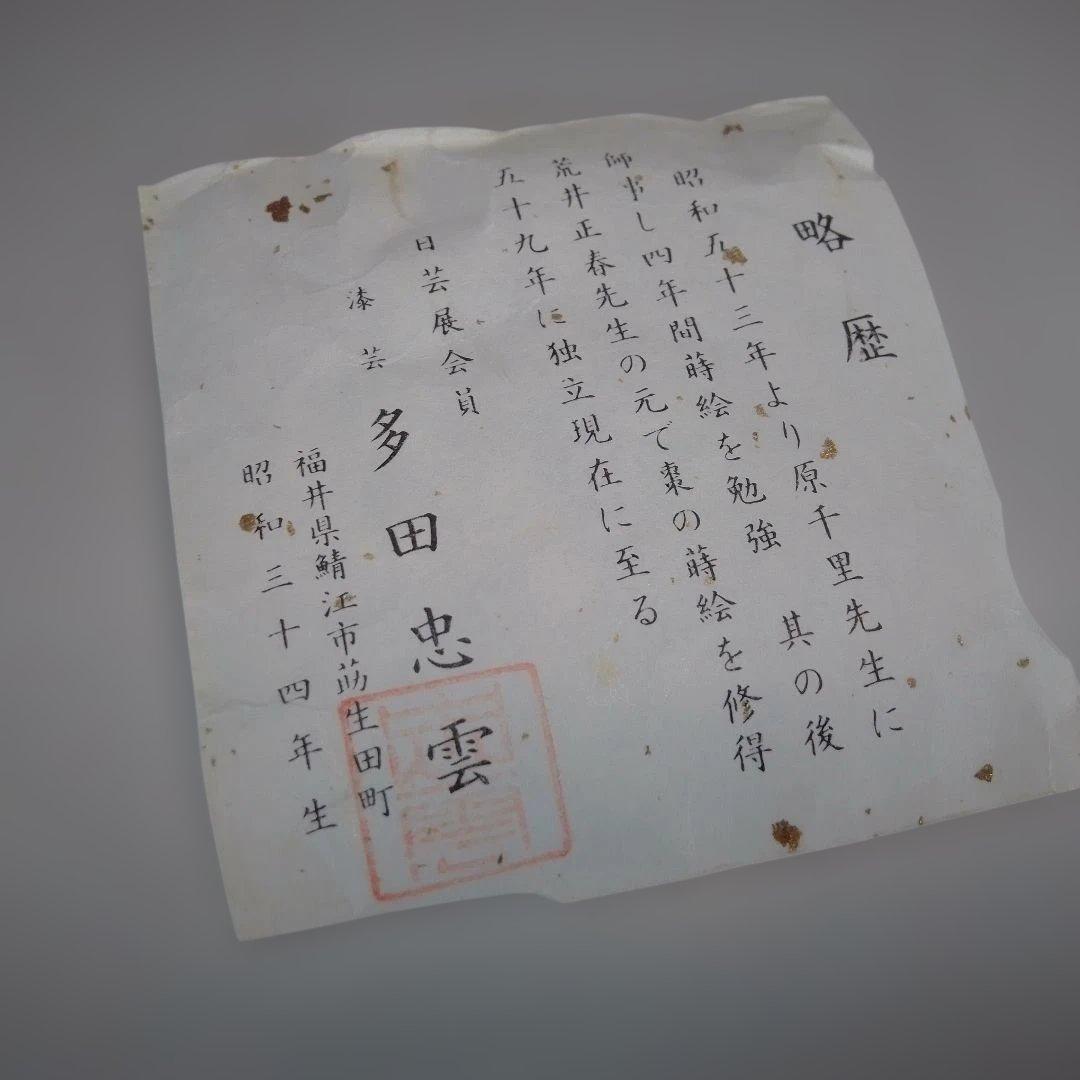 略歴
昭和五十三年より原千里先生に
師事し四年間蒔絵を勉強 其の後
荒井正春先生の元で棗の蒔絵を修得
五十九年に独立現在に至る
日芸展会員
漆芸 多田忠雲
福井県鯖江市莇生田町
昭和三十四年生